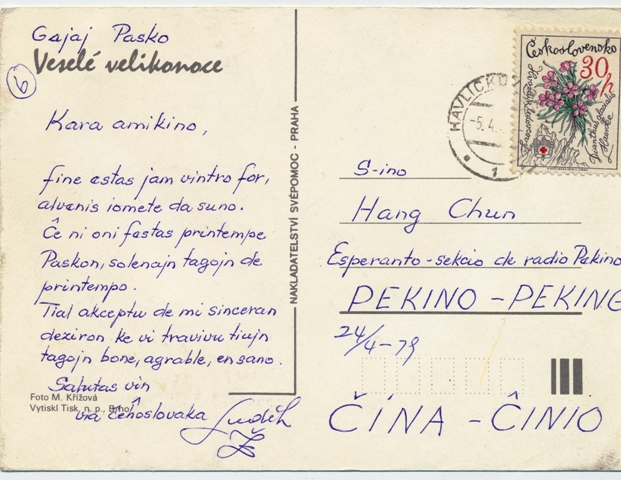 Gajaj Pasko
Veselé velikonoce
6
Kara amikino,
fine estas jam vintro for,
alvenis iomete da suno.
Ĉe ni oni festas printempe
Paskon, solenajn tagojn de
printempo.
Tial akceptu de mi sinceran
deziron ke vi travivu tiujn
tagojn bone, agrable, en sano.
Salutas vin
via ĉeĥoslovaka Luděk
Foto M. Křížová
Vytiskl Tisk, n. p., Brno
NAKLADATELSTVÍ SVÉPOMOC - PRAHA
HAVLÍČKŮV
-5.4.
1
Československo
30h
Dianthus glacialis
Haenke
S-ino
Hang Chun
Esperanto-sekcio de radio Pekino
PEKINO - PEKING
24/4-79
ČÍNA - ĈINIO